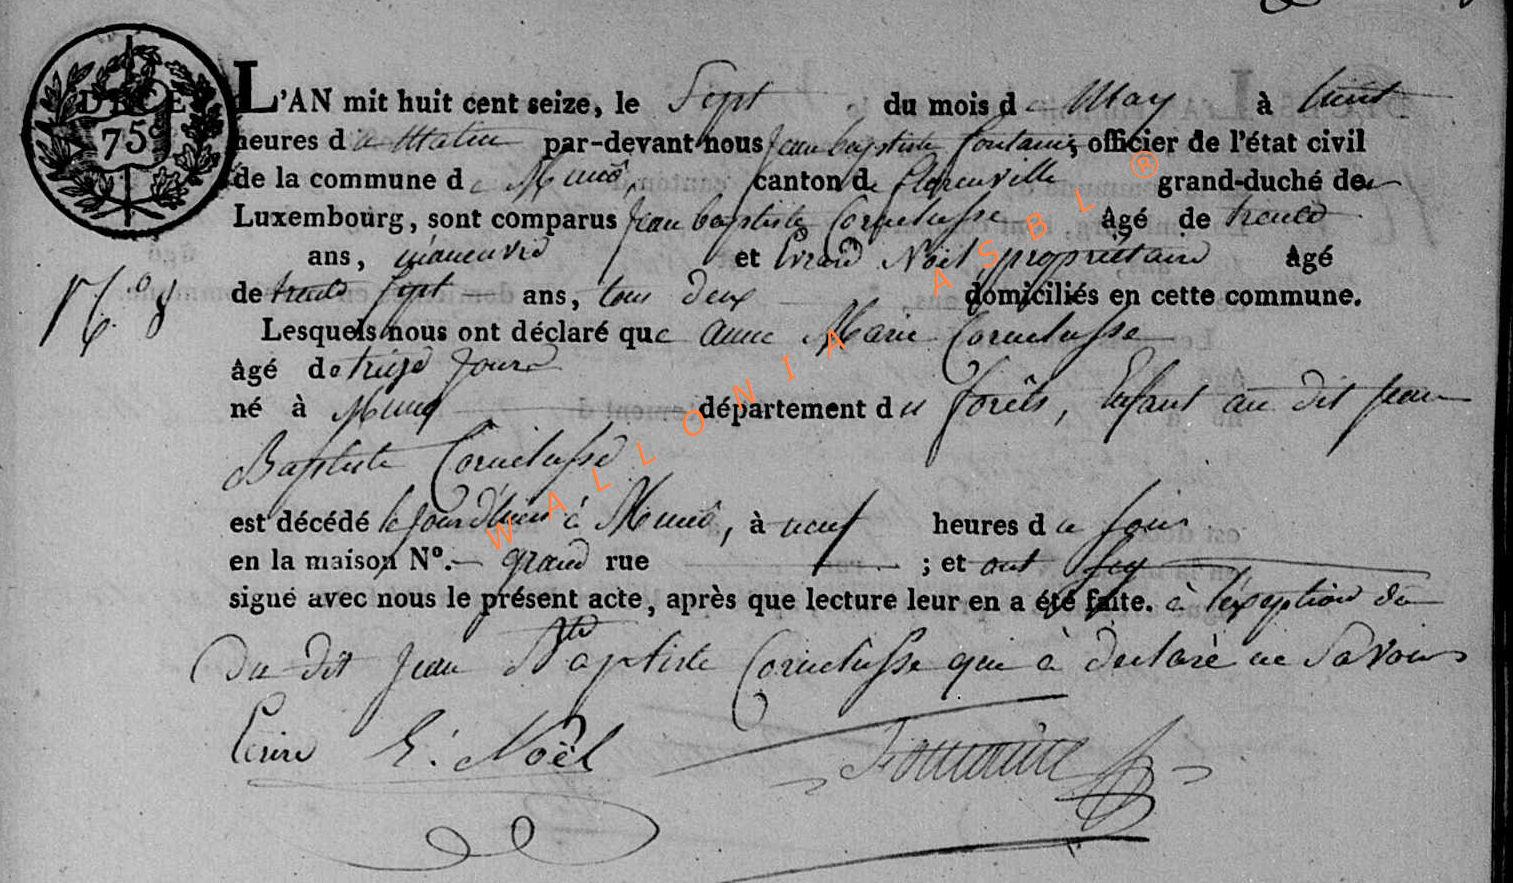 DÉCÈS
75
L'AN mit huit cent seize, le Sept du mois de May à huit
heures du Matin par-devant nous Jean baptiste fontaine, officier de l'état civil
de la commune de Muno, canton de florenville grand-duché de
Luxembourg, sont comparus Jean baptiste Cornelusse âgé de trente
ans, maneuvre et Evrard Noël propriétaire âgé
de trente Sept ans, tous deux domiciliés en cette commune.
N.o 8
Lesquels nous ont déclaré que anne Marie Cornelusse
âgé de treize Jours
né à Muno département du forêts, Enfant au dit Jean
Baptiste Cornelusse
est décédé le Jourd'hier à Muno, à neuf heures du soir
en la maison No. grand rue ; et ont
signé avec nous le présent acte, après que lecture leur en a été faite. à l'exeption du
du dit Jean Baptiste Cornelusse qui à declaré ne Savoir
Ecrire E. Noël Fontaine
WALLONIA ASBL ®